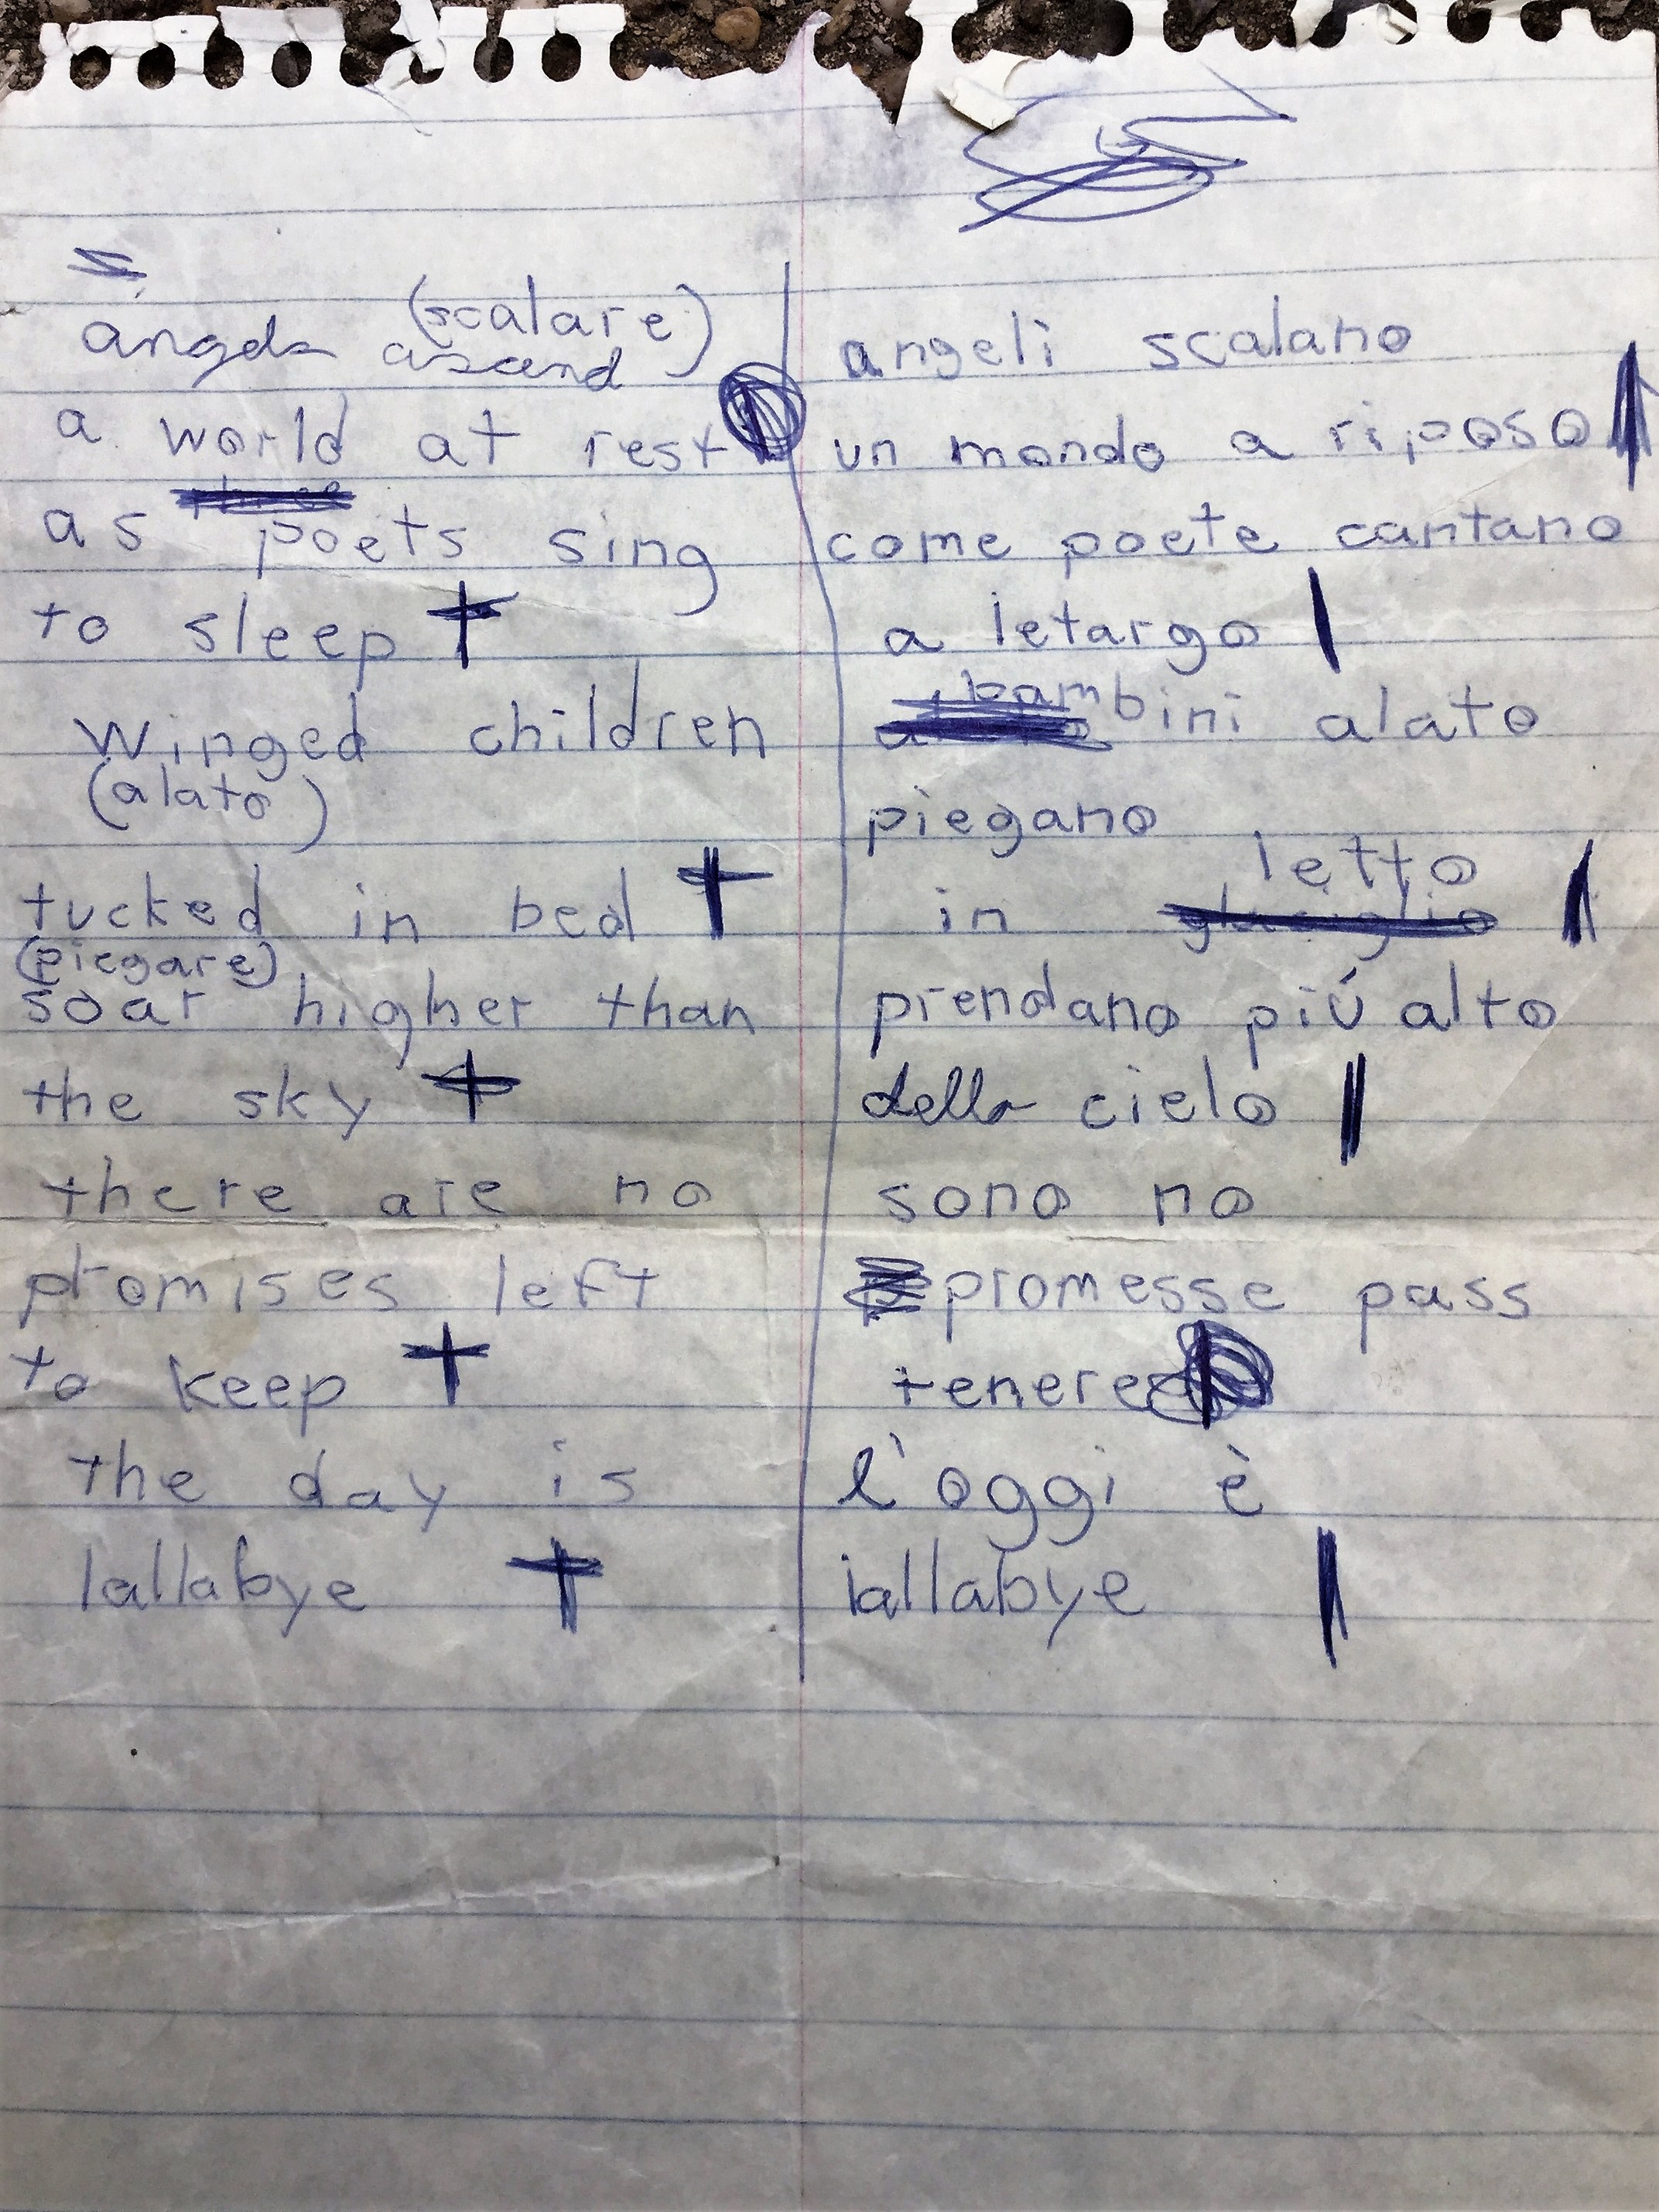 (scalare)
angels ascend
a world at rest
as poets sing
to sleep
winged children
(alato)
tucked in bed
(piegare)
soar higher than
the sky
there are no
promises left
to keep
the day is
lallabye
angeli scalano
un mondo a riposo
come poete cantano
a letargo
bambini alato
piegano
letto
in
prendano piú alto
della cielo
sono no
promesse pass
tenere
l'oggi è
lallabye